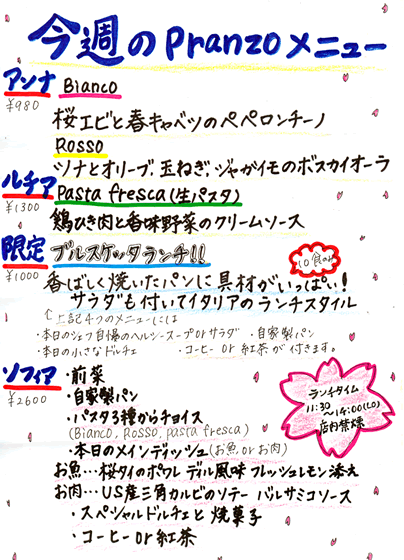 今週のPranzoメニュー
アンナ Bianco
¥980
桜エビと春キャベツのペペロンチーノ
Rosso
ツナとオリーブ、玉ねぎ、ジャガイモのボスカイオーラ
ルチア Pasta fresca(生パスタ)
¥1300
鶏ひき肉と香味野菜のクリームソース
限定 ブルスケッタランチ!!
¥1000
10食のみ
香ばしく焼いたパンに具材がいっぱい!
サラダも付いてイタリアのランチスタイル
↑上記4つのメニューには
・本日のシェフ自慢のヘルシースープorサラダ ・自家製パン
・本日の小さなドルチェ ・コーヒーor紅茶が付きます。
ソフィア ・前菜
¥2600
・自家製パン
・パスタ3種からチョイス
(Bianco, Rosso, pasta fresca)
・本日のメインディッシュ(お魚orお肉)
お魚…桜タイのポワレ ディル風味 フレッシュレモン添え
お肉…US産三角カルビのソテー バルサミコソース
・スペシャルドルチェと焼菓子
・コーヒーor紅茶
ランチタイム
11:30
〜14:00(LO)
店内禁煙